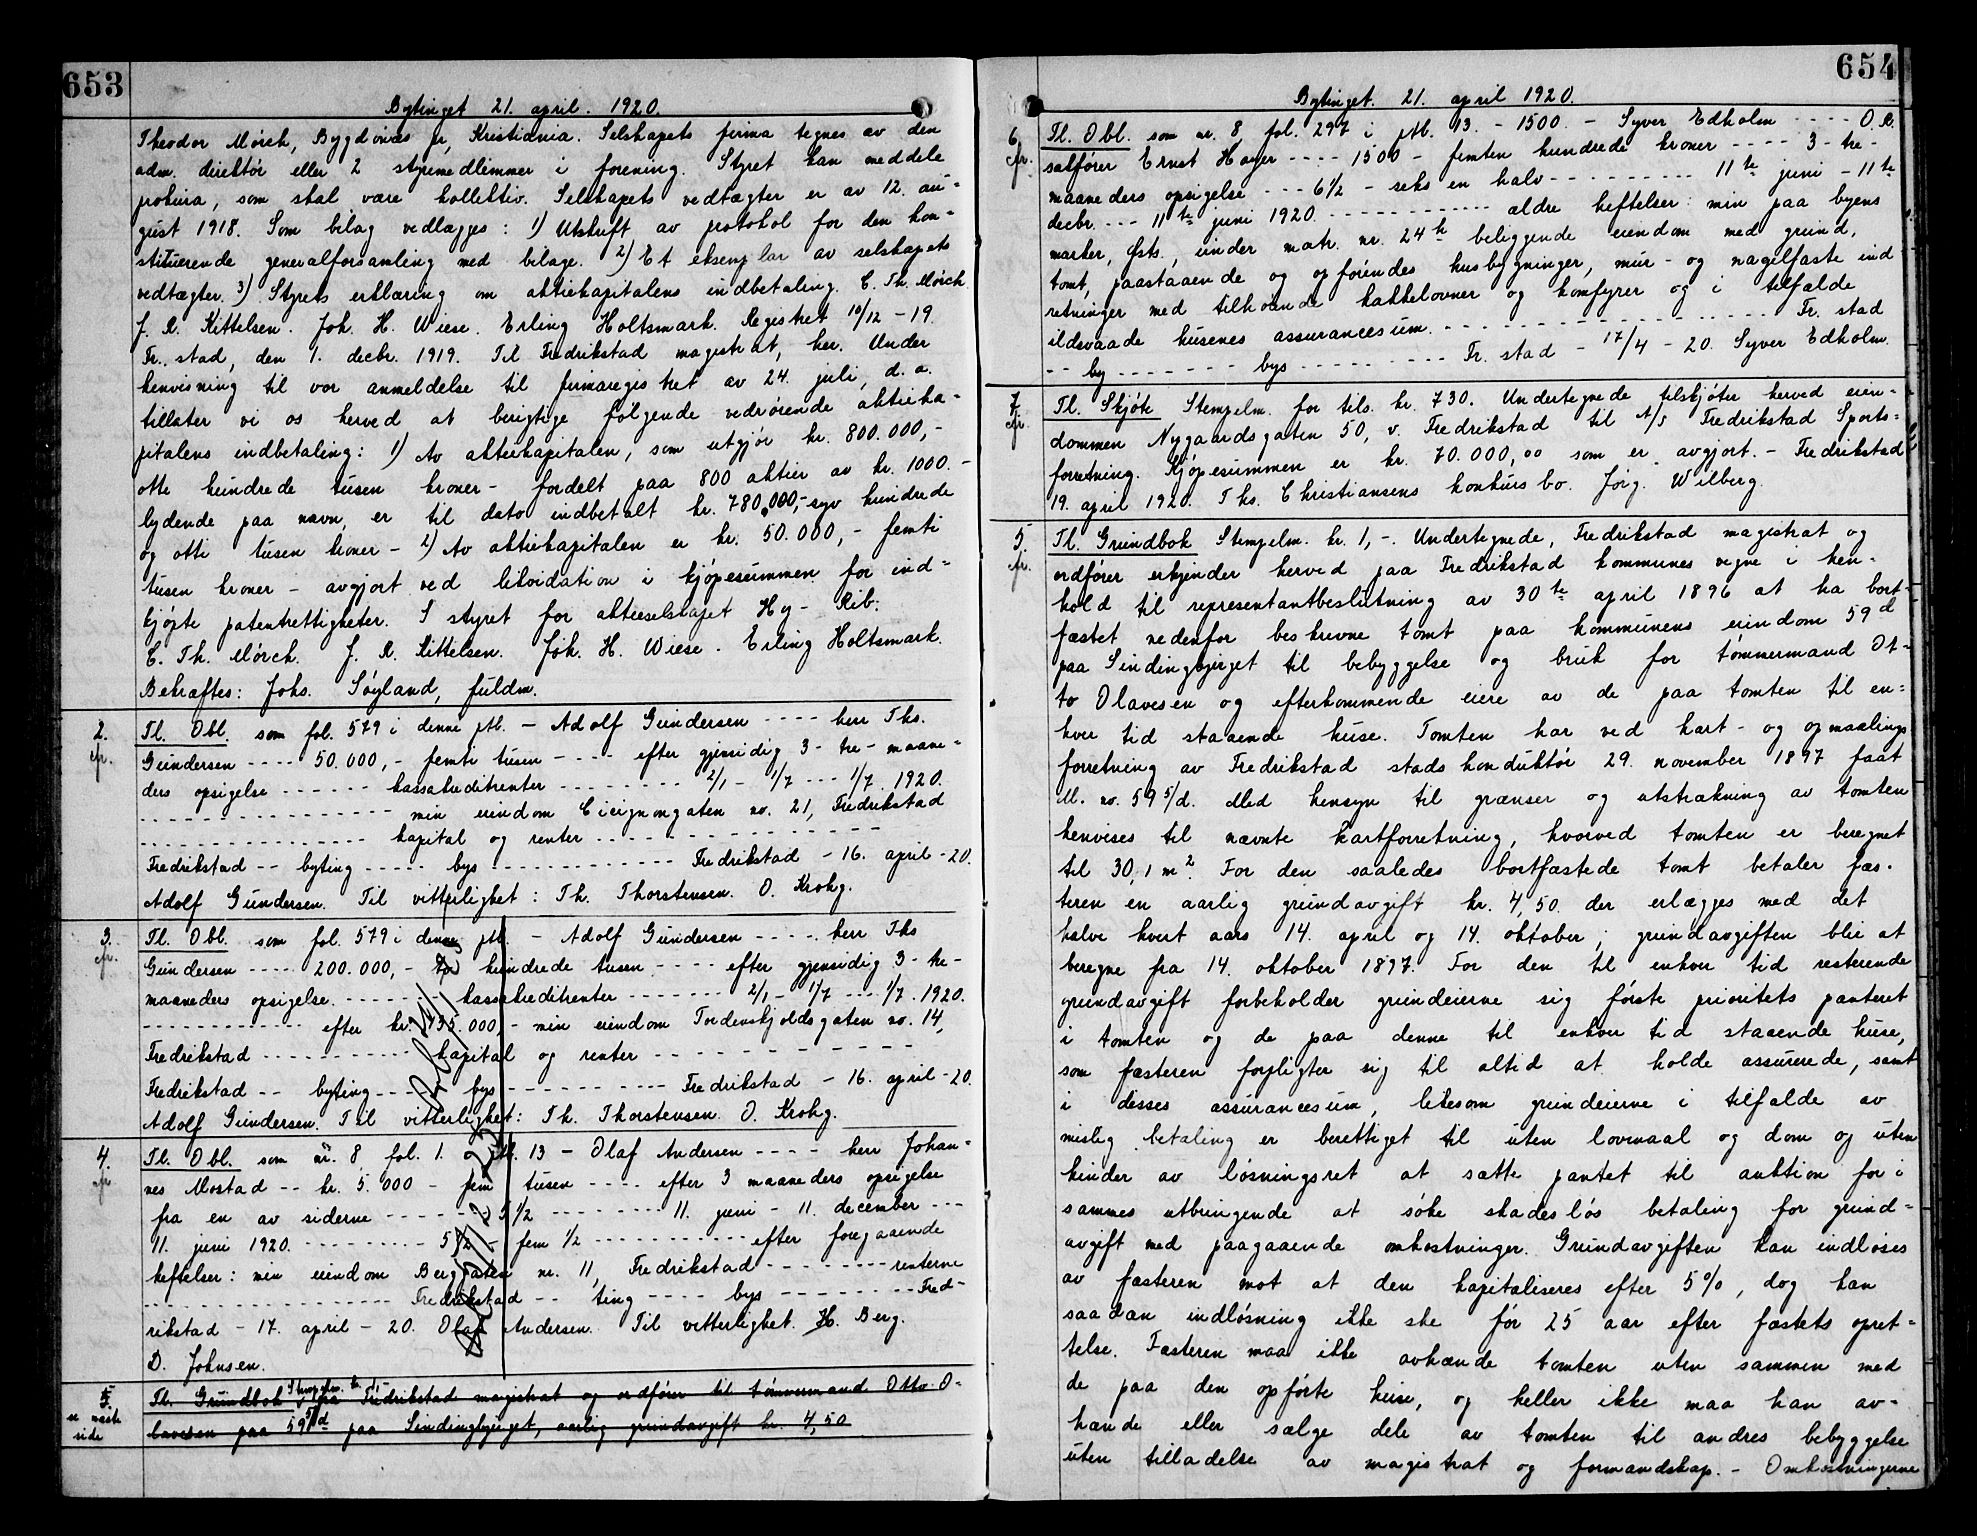 653
Bytinget 21. april. 1920.
Theodor Mörch, Bygdönæs pr, Kristiania. Selskapets firma tegnes av den
adm. direktör eller 2 styremedlemmer i forening. Styret kan meddele
prokura, som skal være kollektiv. Selskapets vedtægter er av 12. au-
gust 1918. Som bilag vedlægges: 1) Utskrift av protokol for den kon-
stituerende generalforsamling med bilage. 2) Et eksemplar av selskapets
vedtægter. 3) Styrets erklæring om aktiekapitalens indbetaling. C. Th. Mörch
J. R. Kittelsen. Joh. H. Wiese. Erling Holtsmark. Registret 10/12 - 19.
Fr. stad, den 1. decbr. 1919. Til Fredrikstad magistrat, her. Under
henvisning til vor anmeldelse til firmaregistret av 24. juli, d. a.
tillater vi os herved at berigtige fölgende vedrörende aktieka-
pitalens indbetaling: 1) Av aktiekapitalen, som utgjör kr. 800.000,-
otte hundrede tusen kroner - fordelt paa 800 aktier av kr. 1000.-
lydende paa navn, er til dato indbetalt kr. 780.000,- syv hundrede
og otti tusen kroner - 2) Av aktiekapitalen er kr. 50.000,- femti
tusen kroner - avgjort ved likvidation i kjöpesummen for ind-
kjöpte patentrettigheter. I styret for aktieselskapet Hy - Rib.
C. Th. Mörch. J. R. Kittelsen. Joh. H. Wiese. Erling Holtsmark.
Bekræftes: Johs. Söyland, fuldm.
2. Tl. Obl. som fol. 579 i denne ptl. - Adolf Gundersen ---- herr Ths.
cfr. Gundersen ---- 50.000,- femti tusen ---- efter gjensidig 3 - tre - maane-
ders opsigelse ------ kassakreditrenter -------- 2/1 - 1/7 --- 1/7. 1920.
---------------- min eiendom Cicignongaten no. 21, Fredrikstad
-------------- kapital og renter --------------
Fredrikstad -- byting ----- bys ------------ Fredrikstad - 16. april - 20.
Adolf Gundersen. Til vitterlighet: Th. Thorstensen. O. Krohg.
3. Tl. Obl. som fol. 579 i denne ptl. - Adolf Gundersen ---- herr Ths
cfr. Gundersen ---- 200.000,- to hundrede tusen ---- efter gjensidig 3 - tre -
maaneders opsigelse. ------ kassakreditrenter ------- 2/1 - 1/7 --- 1/7. 1920.
------------ efter kr. 135.000,- min eiendom Tordenskjoldsgaten no. 14,
Fredrikstad ---------- kapital og renter ------------
Fredrikstad -- byting ---- bys ---------- Fredrikstad - 16. april - 20.
Adolf Gundersen. Til vitterlighet: Th. Thorstensen. O. Krohg.
4. Tl. Obl. som nr. 8 fol. 1. ptl. 13 - Olaf Andersen ---- herr Johan-
cfr. nes Mostad -- kr. 5.000 - fem tusen ---- efter 3 maaneders opsigelse
fra en av siderne ------- 5 1/2 -------- 11. juni - 11. december ---
11. juni 1920. -------- 5 1/2 - fem 1/2 ----------- efter foregaaende
heftelser: min eiendom Berggaten nr. 11, Fredrikstad -------- renterne
---------------- Fredrikstad -- ting ---- bys -------- Fred-
rikstad - 17. april - 20. Olaf Andersen. Til vitterlighet. H. Berg.
D. Johnsen.
5. Tl. Grundbok Stempelm. kr. 1 fra Fredrikstad magistrat og ordförer til tömmermand Otto O-
se næste side lavesen paa 59 5/d paa Sindingbjerget, aarlig grundavgift kr. 4,50
654
Bytinget. 21. april 1920.
6. Tl. Obl. som nr. 8 fol. 297 i ptl. 13. - 1500. - Syver Edholm ---- O. R.
cfr. satförer Ernst Hoyer ---- 1500 - femten hundrede kroner ---- 3 - tre -
maaneders opsigelse --- 6 1/2 - seks en halv --------- 11te juni - 11te
decbr. --- 11te juni 1920. ------------ ældre heftelser: min paa byens
marker, östs., under matr. nr. 24h beliggende eiendom med grund,
tomt, paastaaende og opförendes husbygninger, mur - og nagelfaste ind
retninger med tilhörende kakkelovner og komfyrer og i tilfælde
ildsvaade husenes assurancesum. ------------------ Fr. stad
-- by ------- bys --------- Fr. stad - 17/4 - 20. Syver Edholm.
7. Tl. Skjöte Stempelm. for tils. kr. 730. Undertegnede tilskjöter herved eien-
cfr. dommen Nygaardsgaten 50, v. Fredrikstad til A/S Fredrikstad Sports-
forretning. Kjöpesummen er kr. 70.000,00 som er avgjort. - Fredrikstad
19. april 1920. Ths. Christiansens konkursbo. Jörg. Wilberg.
5. Tl. Grundbok Stempelm. kr. 1,-. Undertegnede, Fredrikstad magistrat og
cfr. ordförer erkjender herved paa Fredrikstad kommunes vegne i hen-
hold til representantbeslutning av 30te april 1896 at ha bort-
fæstet nedenfor beskrevne tomt paa kommunens eiendom 59d
paa Sindingbjerget til bebyggelse og bruk for tömmermand Ot-
to Olavesen og efterkommende eiere av de paa tomten til en-
hver tid staaende huse. Tomten har ved kart - og opmaalings
forretning av Fredrikstad stadskonduktör 29. november 1897 faat
M. no. 59 5/d. Med hensyn til grænser og utstrækning av tomten
henvises til nævnte kartforretning, hvorved tomten er beregnet
til 30,1 m2. For den saaledes bortfæstede tomt betaler fæs-
teren en aarlig grundavgift kr. 4,50 der erlægges med det
halve hvert aars 14. april og 14. oktober; grundavgiften blir at
beregne fra 14. oktober 1897. For den til enhver tid resterende
grundavgift forbeholder grundeierne sig förste prioritets panteret
i tomten og de paa denne til enhver tid staaende huse,
som fæsteren forpligter sig til altid at holde assurerede, samt
i desses assurancesum, likesom grundeierne i tilfælde av
mislig betaling er berettiget til uten lovmaal og dom og uten
hinder av lösningsret at sætte pantet til auktion for i
sammes utbringende at söke skadeslös betaling for grund-
avgift med paagaaende omkostninger. Grundavgiften kan indlöses
av fæsteren mot at den kapitaliseres efter 5%, dog kan
saadan indlösning ikke ske för 25 aar efter fæstets opret-
telse. Fæsteren maa ikke avhænde tomten uten sammen med
de paa den opförte huse, og heller ikke maa han av-
hænde eller sælge dele av tomten til andres bebyggelse
uten tilladelse av magistrat og formandskap. - Omkostningerne